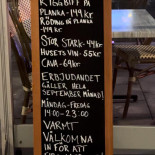 RYGGBIFF PÅ
PLANKA - 149 KR
RÖDING PÅ PLANKA
-149 KR
STOR STARK - 49 KR
HUSETS VIN - 55 KR
CAVA - 69 KR
ERBJUDANDET
GÄLLER HELA
SEPTEMBER MÅNAD!
MÅNDAG - FREDAG
14:00 - 23:00
VARMT
VÄLKOMNA
IN FÖR ATT